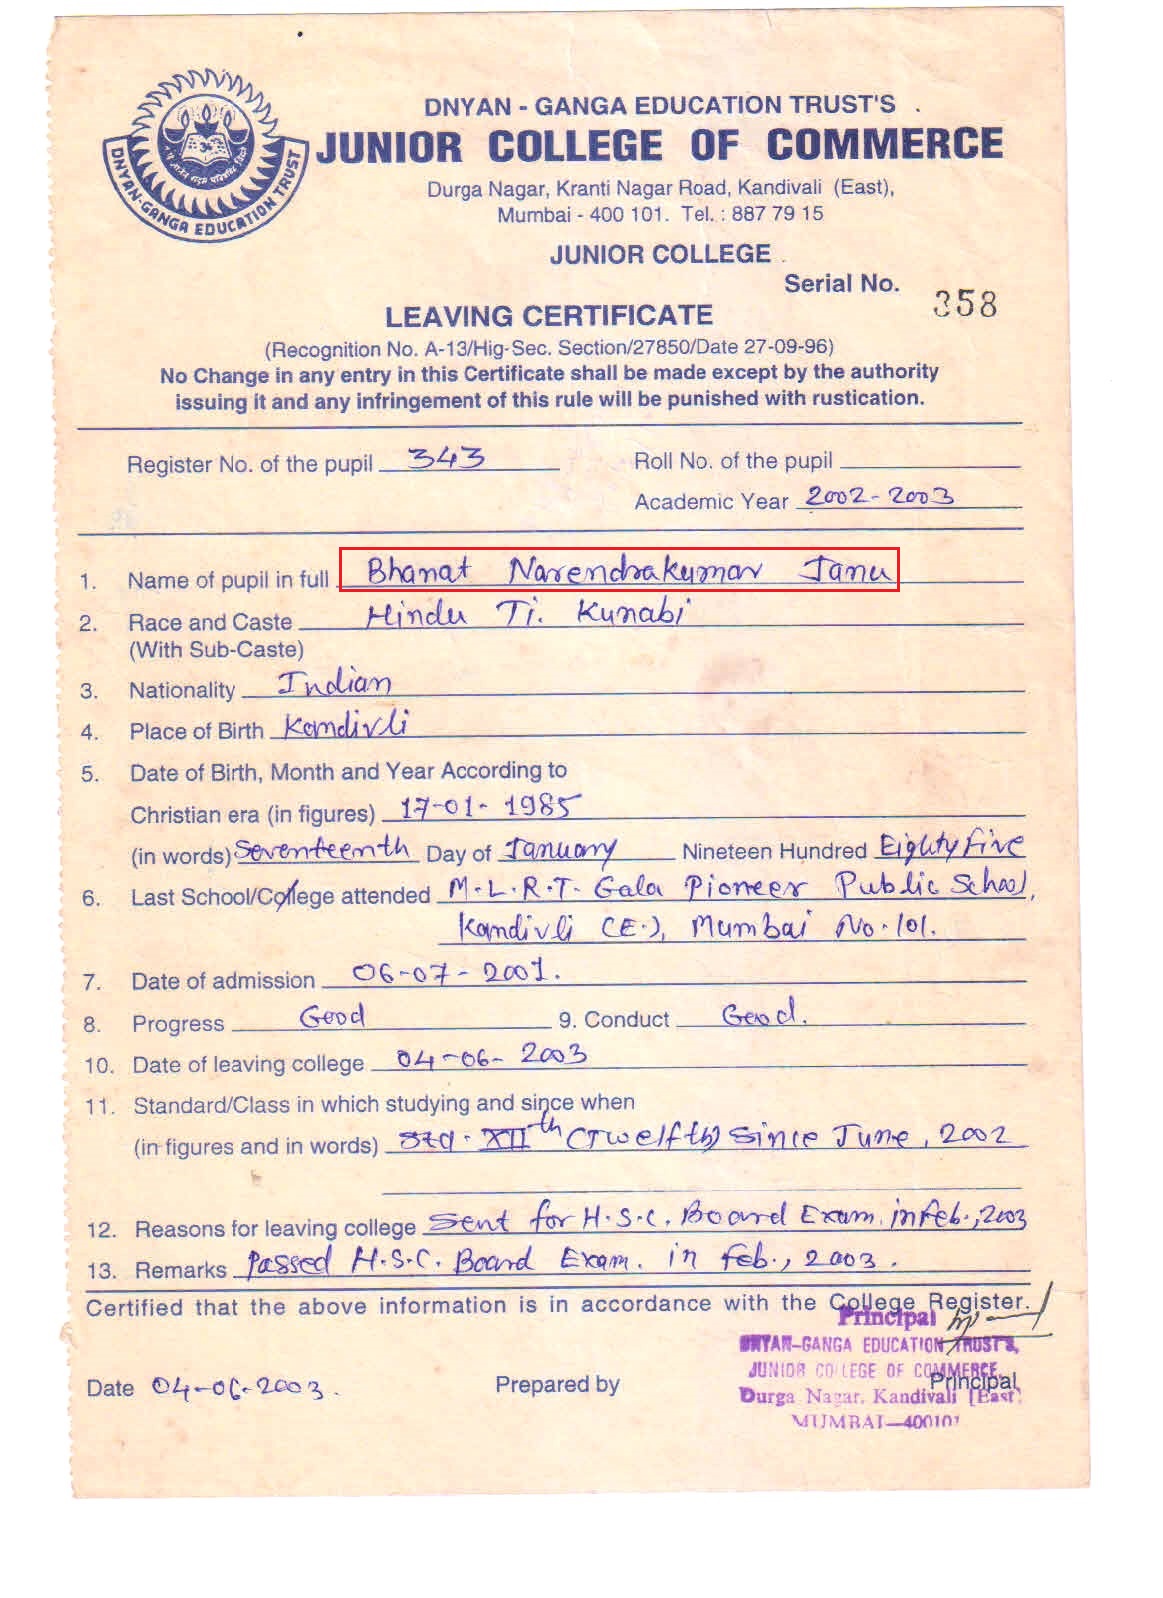 DNYAN - GANGA EDUCATION TRUST'S
JUNIOR COLLEGE OF COMMERCE
Durga Nagar, Kranti Nagar Road, Kandivali (East),
Mumbai - 400 101. Tel. : 887 79 15
DNYAN-GANGA EDUCATION TRUST
JUNIOR COLLEGE
Serial No. 358
LEAVING CERTIFICATE
(Recognition No. A-13/Hig-Sec. Section/27850/Date 27-09-96)
No Change in any entry in this Certificate shall be made except by the authority
issuing it and any infringement of this rule will be punished with rustication.
Register No. of the pupil 343 Roll No. of the pupil
Academic Year 2002-2003
1. Name of pupil in full Bhanat Narendrakumar Janu
2. Race and Caste Hindu Ti. Kunabi
(With Sub-Caste)
3. Nationality Indian
4. Place of Birth Kandivli
5. Date of Birth, Month and Year According to
Christian era (in figures) 17-01-1985
(in words) Seventeenth Day of January Nineteen Hundred Eighty Five
6. Last School/College attended M.L.R.T. Gala Pioneer Public School,
Kandivli (E.), Mumbai No.101.
7. Date of admission 06-07-2001.
8. Progress Good 9. Conduct Good.
10. Date of leaving college 04-06-2003
11. Standard/Class in which studying and since when
(in figures and in words) Std. XIIth (Twelfth) Since June, 2002
12. Reasons for leaving college Sent for H.S.C. Board Exam. in Feb., 2003
13. Remarks Passed H.S.C. Board Exam. in Feb., 2003.
Certified that the above information is in accordance with the College Register.
Principal
DNYAN-GANGA EDUCATION TRUST'S,
JUNIOR COLLEGE OF COMMERCE,
Date 04-06-2003. Prepared by Principal
Durga Nagar, Kandivali [East]
MUMBAI-400101